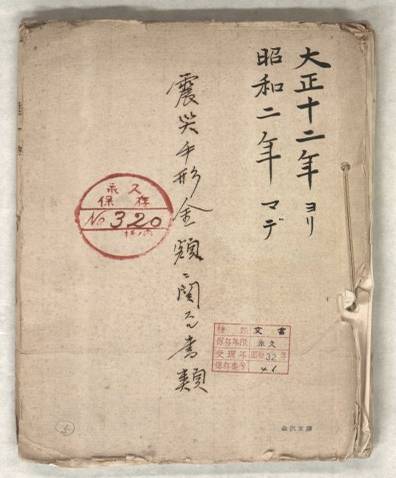 大正十二年ヨリ
昭和二年マデ
震災手形金額ニ関スル書類
永久
保存
No 320
文書
保存年限 永久
受理年 昭和32年
保存番号 41